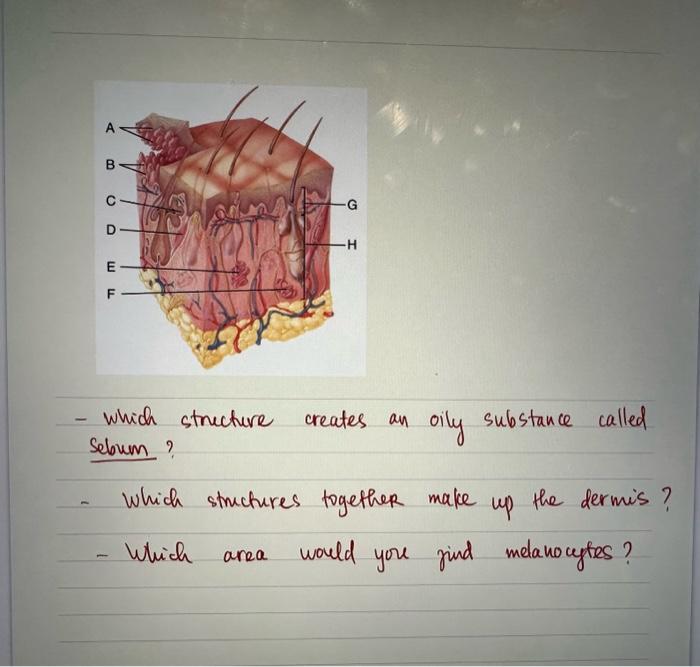 A
B
C
D
E
F
G
H
- which structure creates an oily substance called
Sebum ?
- Which structures together make up the dermis ?
- Which area would you find melanocytes ?